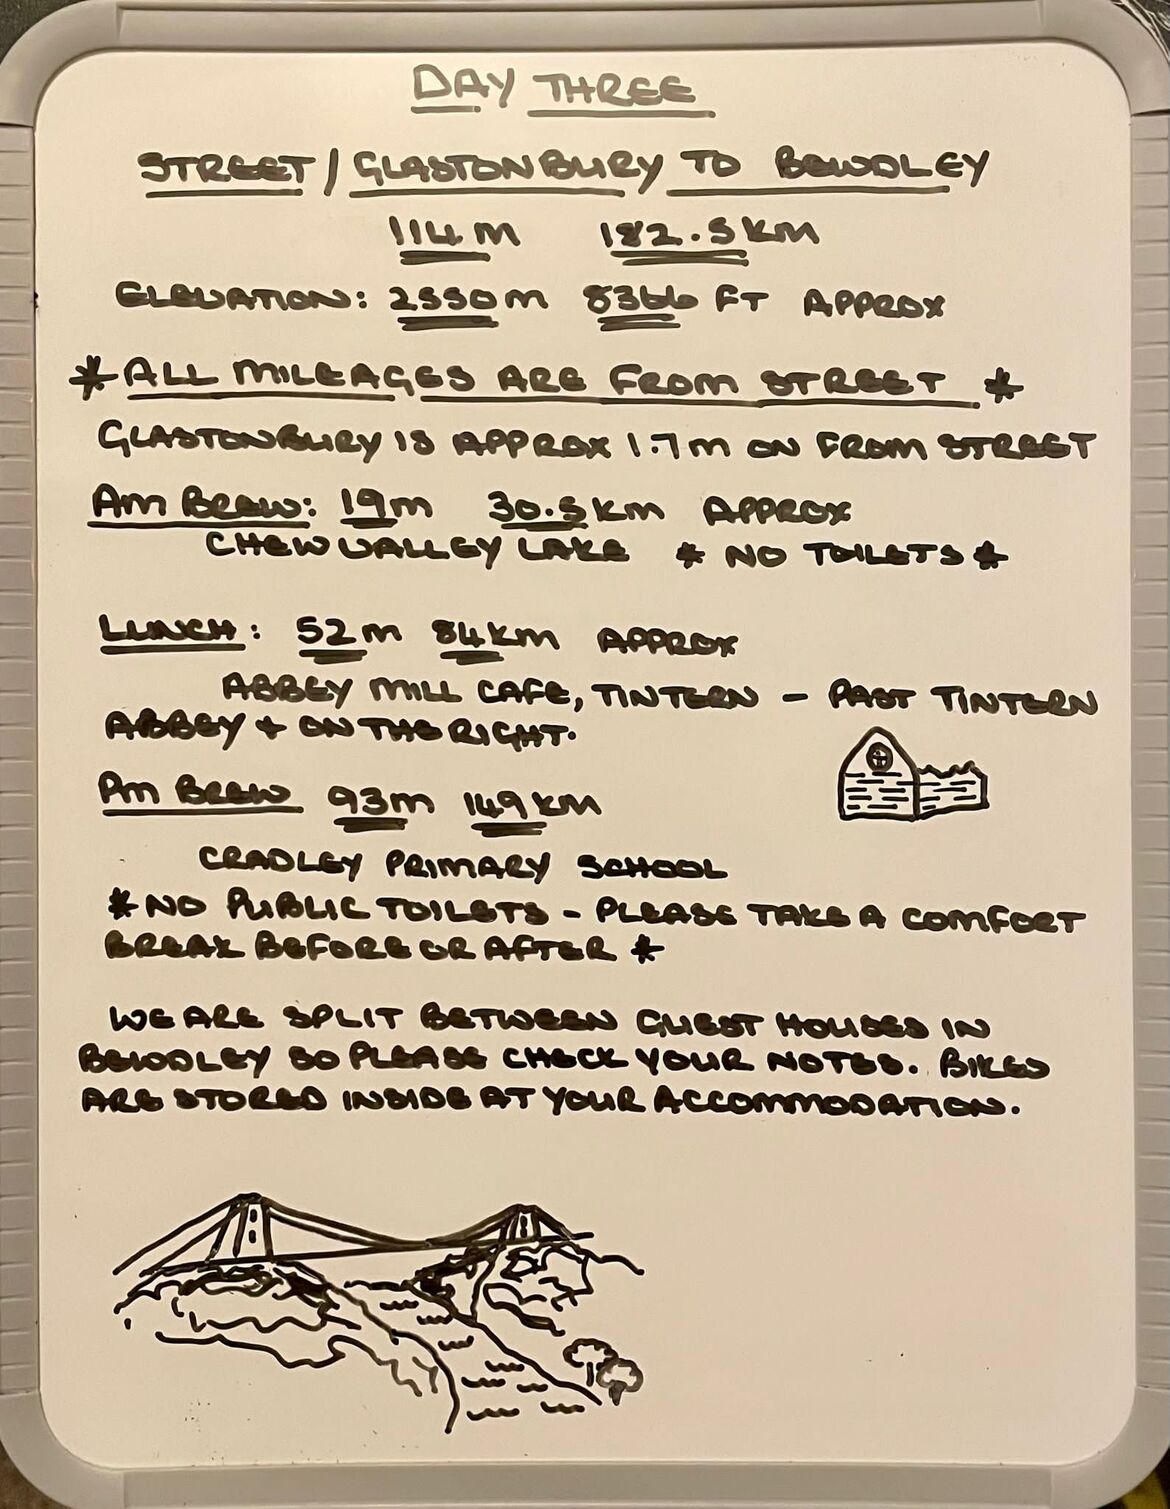 DAY THREE
STREET/GLASTONBURY TO BEWDLEY
114M 182.5KM
ELEVATION: 2550M 8366 FT APPROX
* ALL MILEAGES ARE FROM STREET *
GLASTONBURY IS APPROX 1.7M ON FROM STREET
AM BREW: 19M 30.5KM APPROX
CHEW VALLEY LAKE * NO TOILETS *
LUNCH: 52M 84KM APPROX
ABBEY MILL CAFE, TINTERN - PAST TINTERN
ABBEY + ON THE RIGHT.
PM BREW 93M 149KM
CRADLEY PRIMARY SCHOOL
* NO PUBLIC TOILETS - PLEASE TAKE A COMFORT
BREAK BEFORE OR AFTER *
WE ARE SPLIT BETWEEN GUEST HOUSES IN
BEWDLEY SO PLEASE CHECK YOUR NOTES. BIKES
ARE STORED INSIDE AT YOUR ACCOMMODATION.